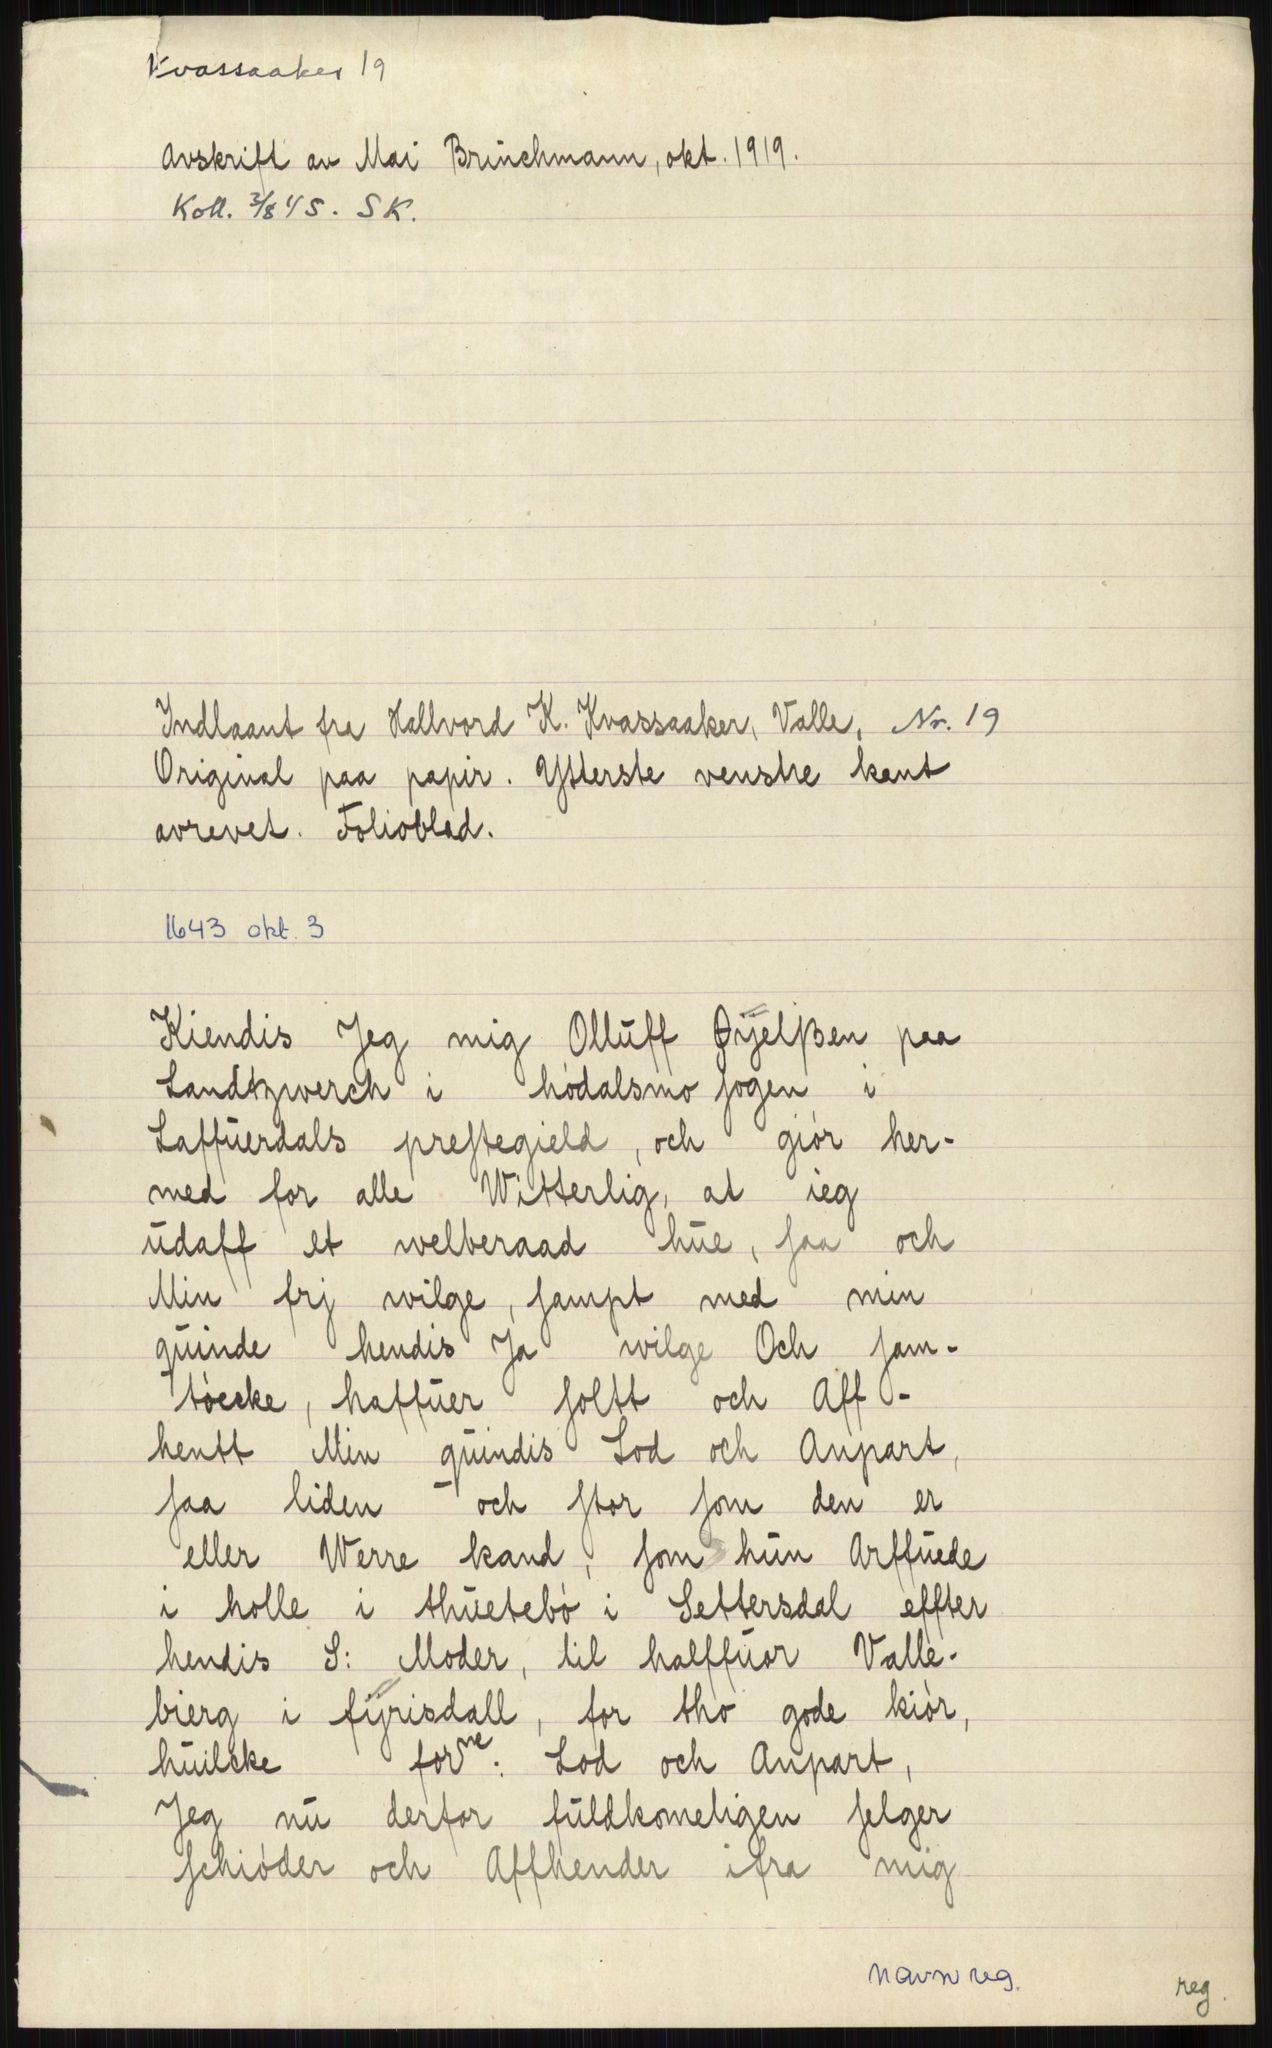 Kvassaaker 19
Avskrift av Mai Brinchmann, okt. 1919.
Koll. 3/8 45. SK.
Indlaant fra Hallvord K. Kvassaaker, Valle, Nr. 19
Original paa papir. Ytterste venstre kant
avrevet. Folioblad.
1643 okt. 3
Kiendis Jeg mig Olluff Øÿelßen paa
Landtzwerch i hódalsmo sogen i
Laffuerdals prestegield, och giór her-
med for alle Witterlig, at ieg
udaff et welberaad hue, saa och
Min frj wilge, sampt med min
quinde hendis Ja wilge Och sam-
tóecke, haffuer soltt och Aff-
hentt Min quindis Lod och Anpart,
saa liden och stor som den er
eller Werre kand, som hun Arffuede
i holle i thuetebó i Settersdal effter
hendis S: Moder, til halffuor Valle-
bierg i fÿrisdall, for tho gode kiór,
huilcke forne: Lod och Anpart,
Jeg nu derfor fuldkomeligen selger
schióder och Affhender ifra mig
navnreg.
reg.